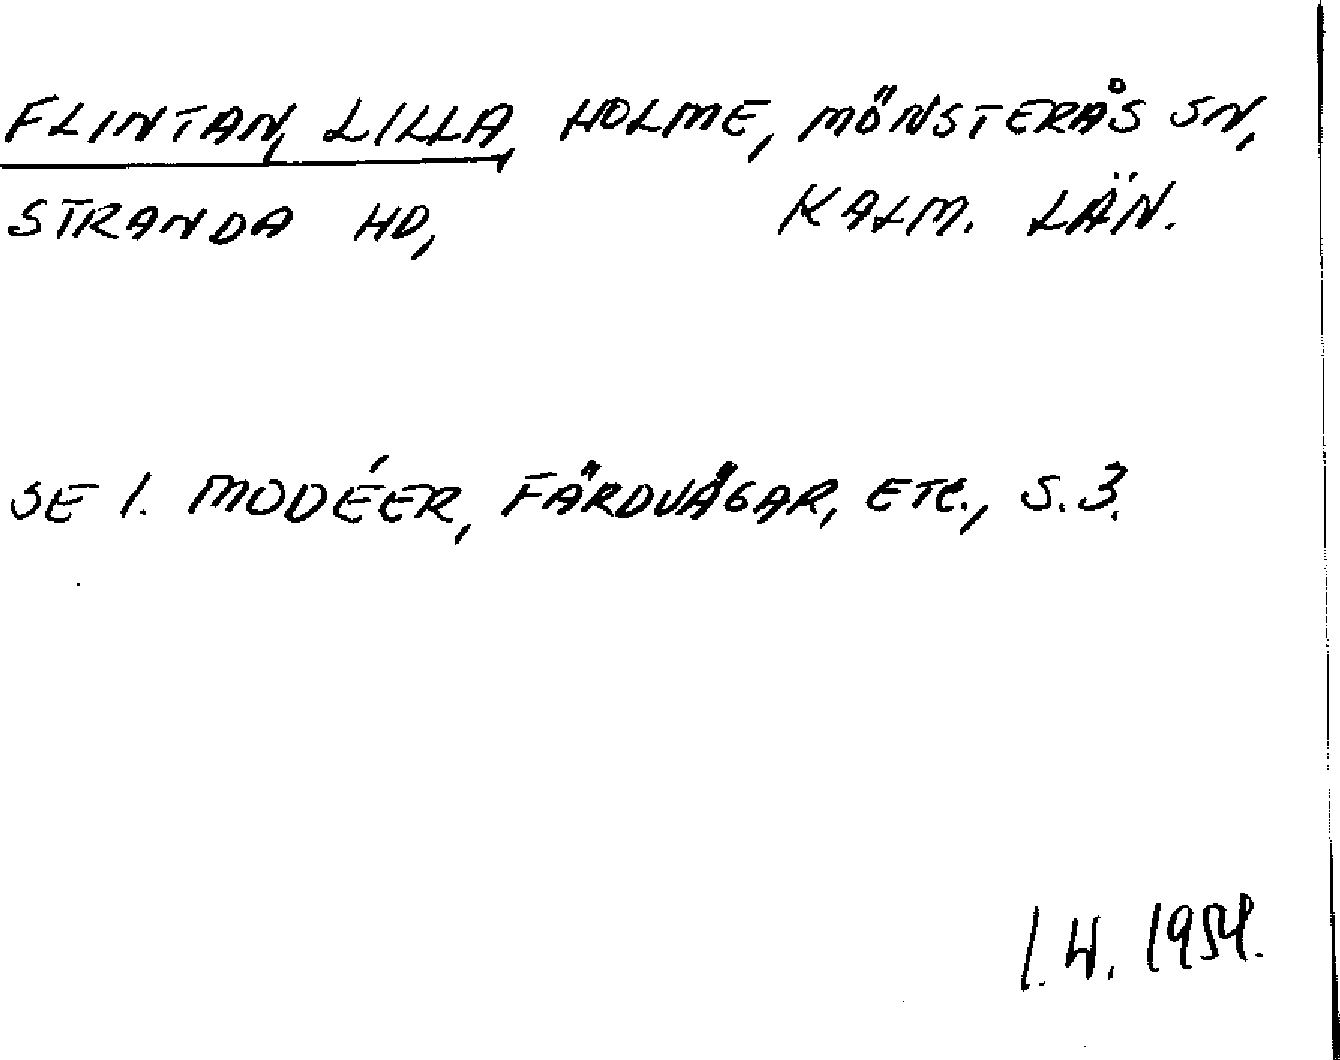 FLINTAN, LILLA, HOLME, MÖNSTERÅS SN,
STRANDA HD, KALM. LÄN.
SE I. MODÉER, FÄRDVÄGAR, ETC., S. 3.
I. H. 1954.